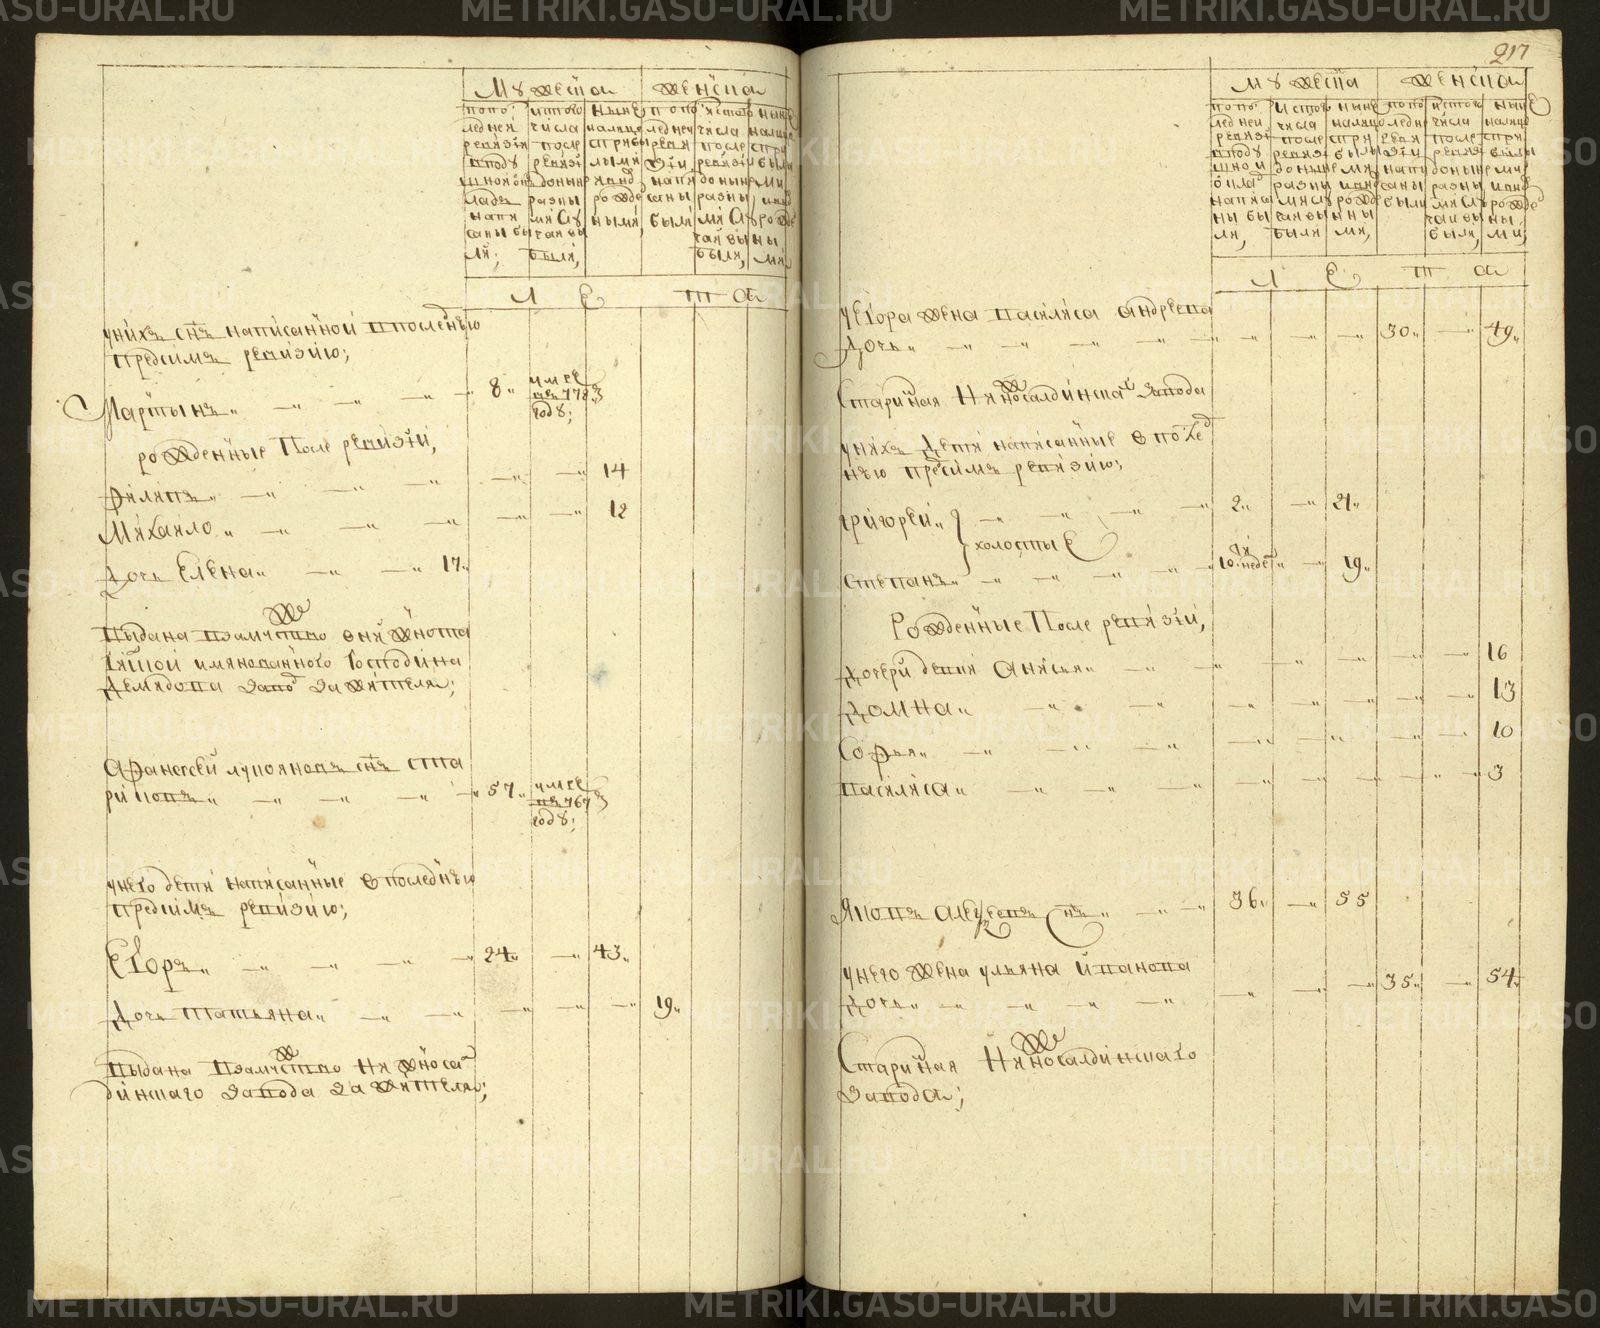 217
Мужеска
Женска
по по
следней
ревизiи
в поду
шной ок
ладъ
напи
саны бы
ли;
и стого
числа
после
ревизiи
до ныне
разны
ми слу
чаи вы
были,
ныне
налицо
с прибы
лыми
и внов
рожде
нными,
по по
следней
реви
зiи
напи
саны
были
и стого
числа
после
ревизiи
до ныне
разны
ми слу
чаи вы
были,
ныне
налицо
с при
былы
ми
и внов
рожде
ны
ми
Л Е Т А
у нихъ снъ написанной в последнюю
пред симъ ревизию;
Мартынъ 8 умре въ 778 году;
рожденные После ревизiи,
Филипъ 14
Михайло 12
Дочь Елена 17
выдана в замужство в Нижнота
гилской имянованного Господина
Демидова завод за жителя;
Афанасей лукояновъ снъ ста
риковъ 57 умре въ 767 году;
у него дети написанные в последнюю
пред симъ ревизию;
Егоръ 24 43
Дочь Татьяна 19
выдана в замужство Нижносал
динского завода за жителя;
Мужеска
Женска
по по
следней
ревизiи
в поду
шной
оклад
написа
ны бы
ли,
и стого
числа
после
ревизiи
до ныне
разны
ми слу
чаи вы
были
ныне
налицо
с при
былы
ми
и внов
рожде
нны
ми,
по по
следне
реви
зiи
напи
саны
были
и стого
числа
после
ревизiи
до ныне
разны
ми слу
чаи вы
были,
ныне
налицо
с при
былы
ми
и внов
рожде
ны
ми,
Л Е Т А
у Егора жена Василиса Андреева
Дочь 30 49
Старинная Нижносалдинскаго завода
у нихъ Дети написанные в послед
нюю пред симъ ревизию;
григорей 2 21
холостые
Степанъ 10 ти недел 19
Рожденные После ревизiи,
дочери девки Анисья 16
Домна 13
Софья 10
Василиса 3
Яковъ Алексеевъ Снъ 36 55
у него жена ульяна Иванова
Дочь 35 54
Старинная Нижносалдинскаго
Завода;